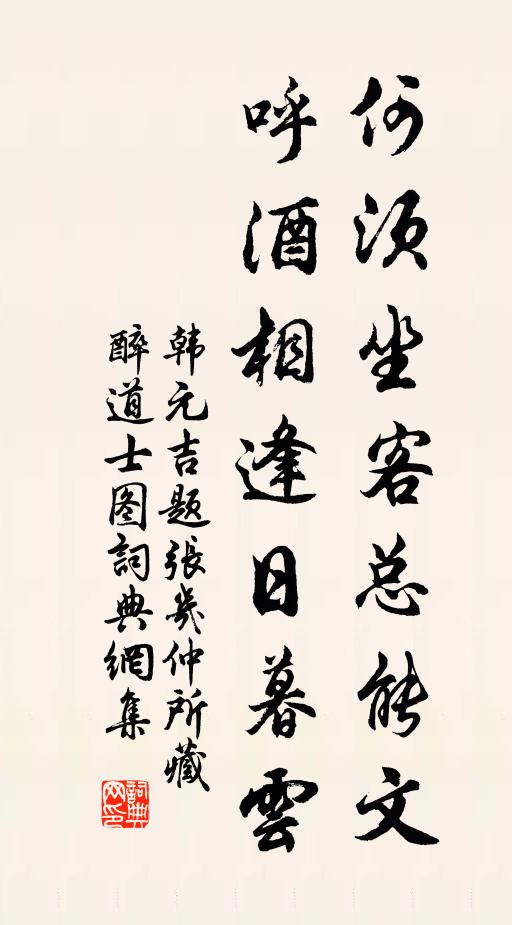 何须坐客总能文
呼酒相逢日暮雲
韩元吉题張幾仲所藏
醉道士图詞典網集
詞典网印